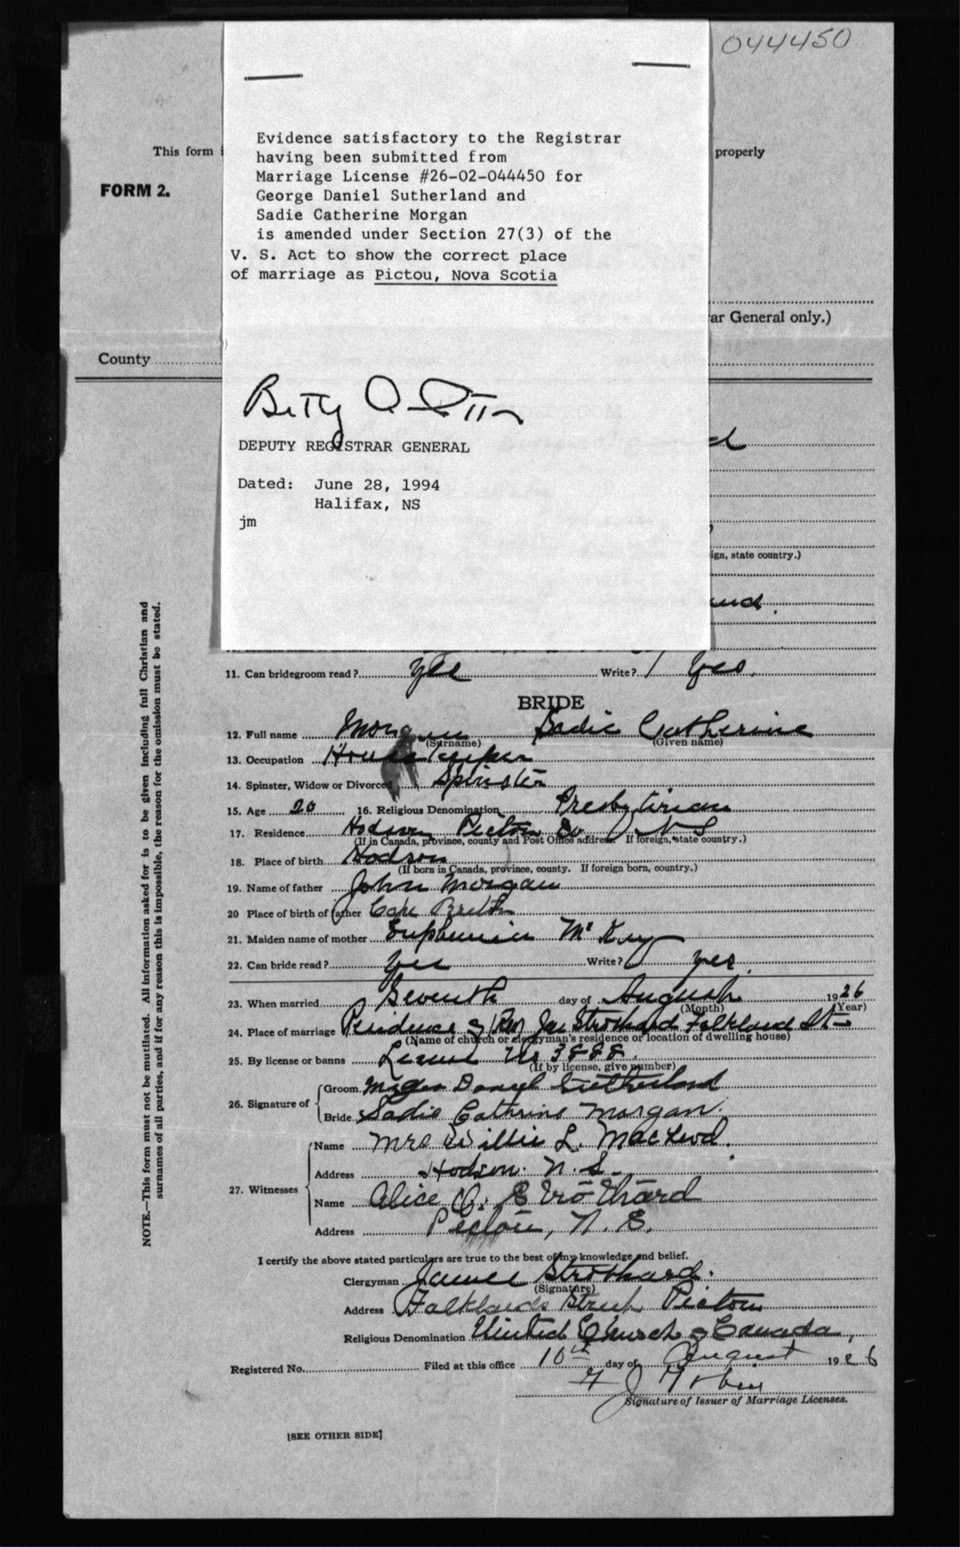 044450
This form
properly
FORM 2.
Evidence satisfactory to the Registrar
having been submitted from
Marriage License #26-02-044450 for
George Daniel Sutherland and
Sadie Catherine Morgan
is amended under Section 27(3) of the
V. S. Act to show the correct place
of marriage as Pictou, Nova Scotia
ar General only.)
County
DEPUTY REGISTRAR GENERAL
Dated: June 28, 1994
Halifax, NS
jm
ign, state country.)
11. Can bridegroom read? Yes Write? Yes.
BRIDE
12. Full name Morgan Sadie Catherine
(Surname) (Given name)
13. Occupation House Keeper
14. Spinster, Widow or Divorced Spinster
15. Age 20 16. Religious Denomination Presbyterian
17. Residence Hodson Pictou Co. N S
(If in Canada, province, county and Post Office address. If foreign, state country.)
18. Place of birth Hodson
(If born in Canada, province, county. If foreign born, country.)
19. Name of father John Morgan
20 Place of birth of father Cape Breton
21. Maiden name of mother Euphemia McKay
22. Can bride read? Yes Write? yes.
23. When married Seventh day of August 1926
(Month) (Year)
24. Place of marriage Residence of Rev Jas Strothard Falkland St
(Name of church or clergyman's residence or location of dwelling house)
25. By license or banns License No 3888.
(If by license, give number)
26. Signature of
Groom Daniel Sutherland
Bride Sadie Cathrine Morgan.
27. Witnesses
Name Mrs Willie L. MacLeod.
Address Hodson. N. S.
Name Alice O. Strothard
Address Pictou, N. S.
I certify the above stated particulars are true to the best of my knowledge and belief.
Clergyman James Strothard.
(Signature)
Address Falklands Street Pictou
Religious Denomination United Church of Canada,
Registered No. Filed at this office 10th day of August 1926
Signature of Issuer of Marriage Licenses.
[SEE OTHER SIDE]
NOTE.—This form must not be mutilated. All information asked for is to be given including full Christian and
surnames of all parties, and if for any reason this is impossible, the reason for the omission must be stated.